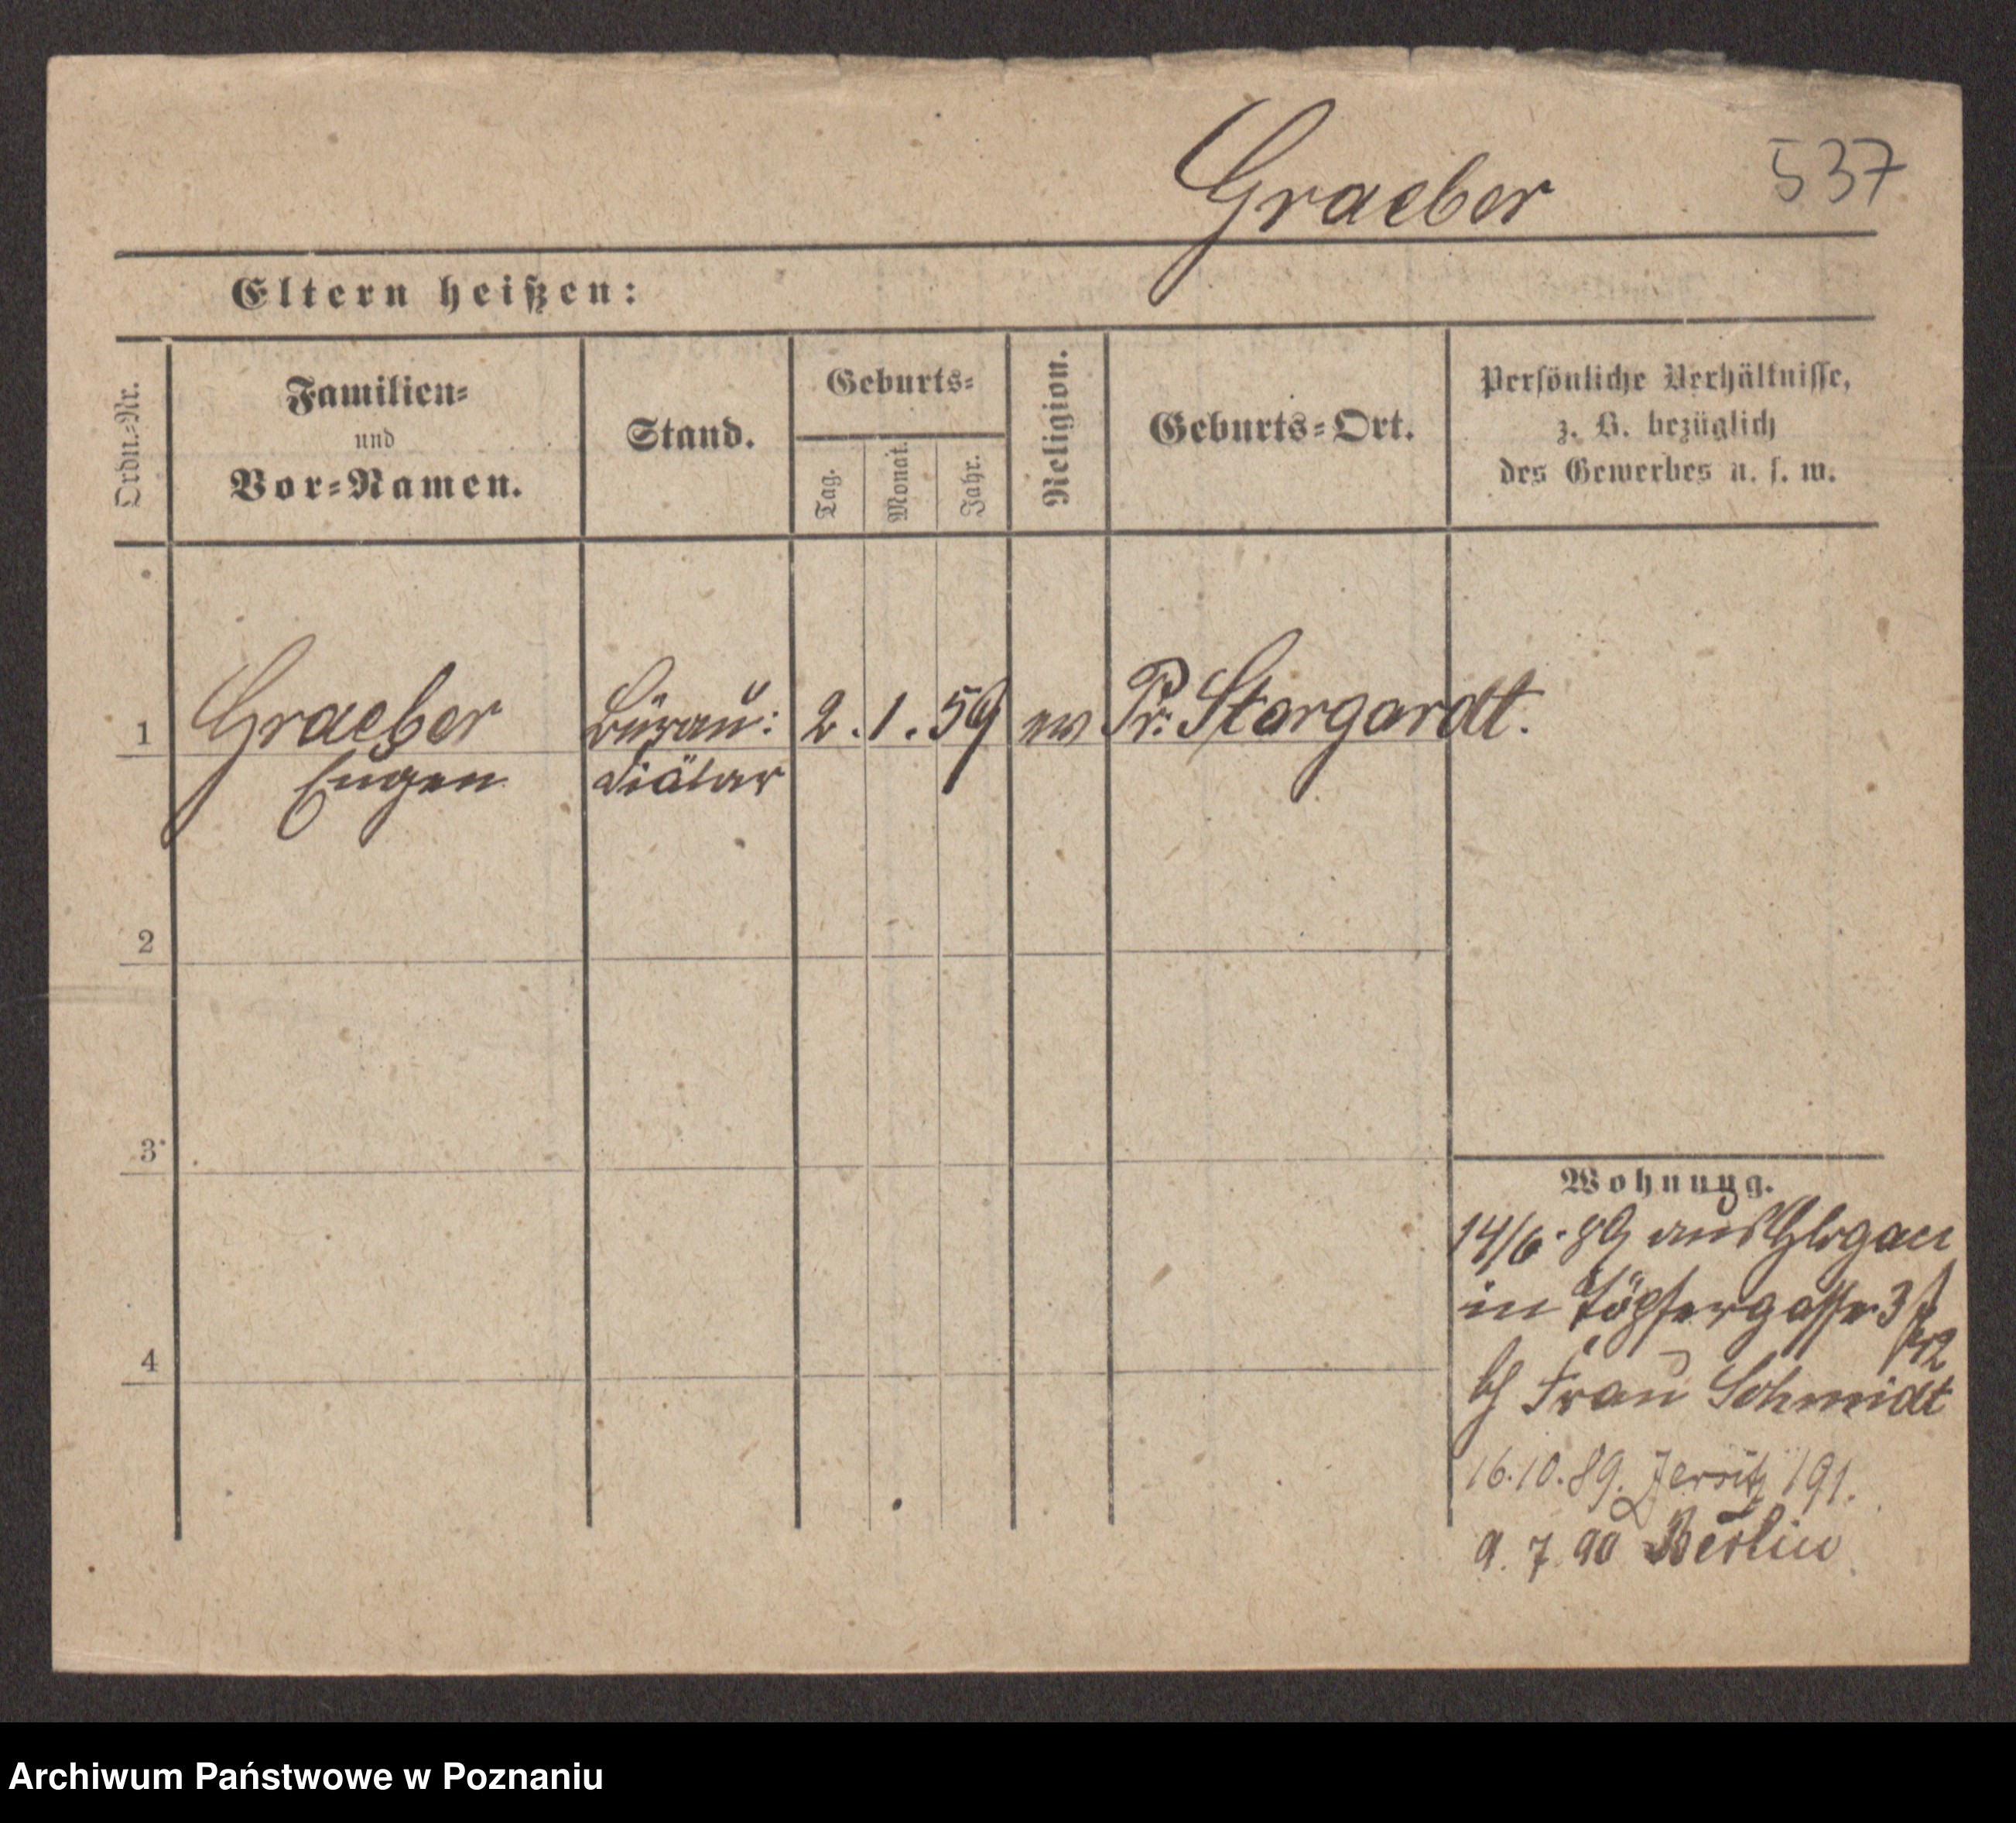 Graeber 537
Eltern heißen:
Ordn.-Nr.
Familien-
und
Vor-Namen.
Stand.
Geburts-
Tag.
Monat.
Jahr.
Religion.
Geburts-Ort.
Persönliche Verhältnisse,
z. B. bezüglich
des Gewerbes u. s. w.
1 Graeber Bürau: 2. 1. 59 ev Pr. Stargardt.
Eugen diätar
2
3
4
Wohnung.
14/6. 89 aus Glogau
in Töpfergasse 3
b/ Frau Schmidt
16.10.89. Jersitz 191.
9. 7. 90 Berlin
Archiwum Państwowe w Poznaniu